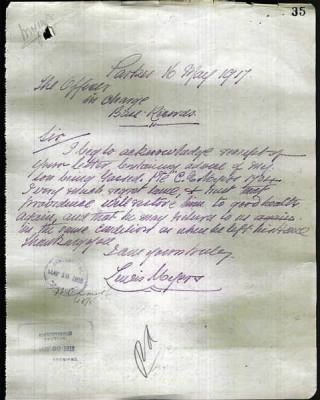 35
16 May 1917
The Officer
in charge
Base Records
Sir
I beg to acknowledge receipt of
your letter, advice of my
son being Gassed. Pte C. C. Meyers
I very much regret same, & trust that
providence will restore him to good health
again, and that he may return to us again
in the same condition as when he left his home
I am yours truly
Lewis Meyers
MAY 20 1918